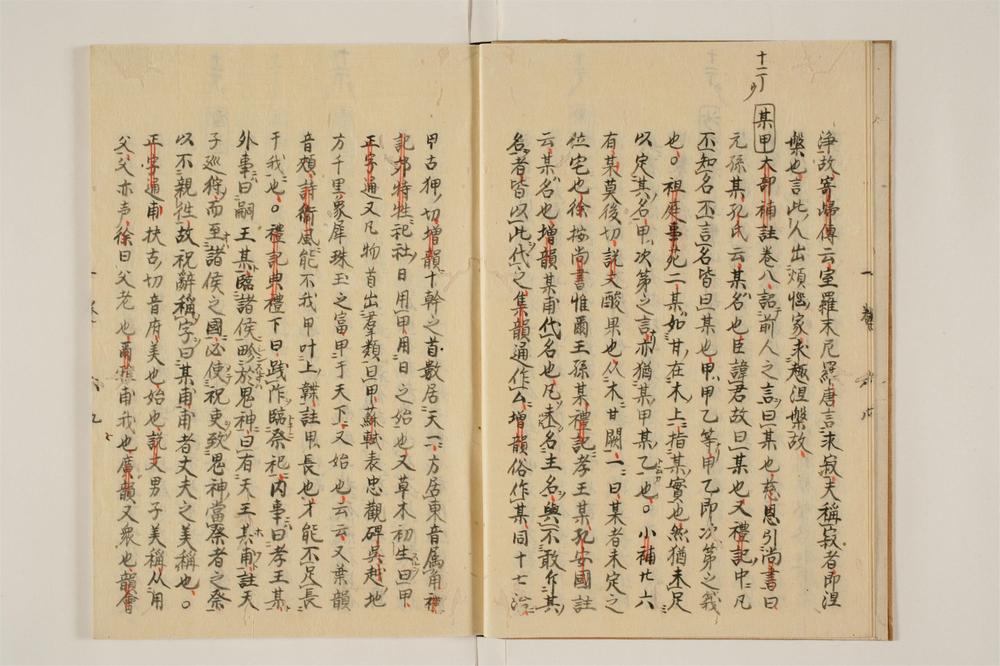 十一丁
浄故寄帰傳云室羅末尼羅唐言求寂夫稱寂者即涅
槃也言此人出煩惱家求趣涅槃故
某甲 大部補註卷八詔前人之言曰某也慈恩引尚書曰
元孫某孔氏云某名也臣諱君故曰某也又禮記中凡
不知名不言名皆曰某也甲甲乙等甲乙即次第之義
也。祖庭事苑二某如甘在木上指其實也然猶未足
以定其名甲次第之言亦猶某甲某乙也。小補廿六
有某莫後切説文酸果也从木甘闕一曰某者未定之
位宅也徐按尚書惟爾王孫某禮記孝王某孔安國註
云某名也增韻某甫代名也凡未名主名與不敢斥其
名者皆以此代之集韻通作厶增韻俗作某同十七洽
甲古狎切增韻十幹之首數居天一方居東音属角禮
記郊特牲祀社日用甲用日之始也又草木初生曰甲
正字通又凡物首出羣類曰甲蘇軾表忠觀碑呉越地
方千里象犀珠玉之富甲于天下又始也云云又葉韻
音頰詩衛風能不我甲叶上韘註甲長也才能不足長
于我也。禮記典禮下曰踐阼臨祭祀内事曰孝王某
外事曰嗣王某臨諸侯畛於鬼神曰有天王某甫註天
子巡狩而至諸侯之國必使祝史致鬼神當祭者之祭
以不親往故祝辭稱字曰某甫甫者丈夫之美稱也。
正字通甫扶古切音府美也始也説文男子美稱从用
父父亦声徐曰父老也爾雅甫我也廣韻又衆也韻會